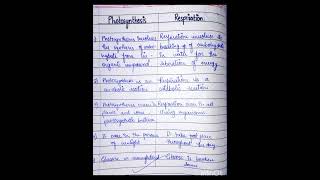 Photosynthesis Respiration
1) Photosynthesis involves Respiration involves the
the synthesis of carbo- breaking up of carbohydrate
hydrate from
organic compound liberation of energy
2) Photosynthesis is an Respiration is a
anabolic reaction catabolic reaction
3) Photosynthesis occurs in Respiration occurs in all
plants and some living organisms
photosynthetic bacteria
4) It occurs in the presence It takes place
of sunlight throughout the day
Glucose is Glucose is broken
down